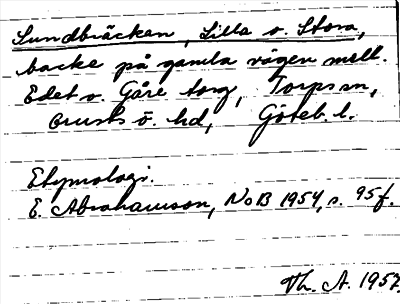 Sundbräckan, Lilla o. Stora,
backe på gamla vägen mell.
Edet o. Gåre torg, Torps sn,
Orusts ö. hd, Göteb. l.
Etymologi.
E. Abrahamson, NoB 1954, s. 95f.
Th. A. 1957.